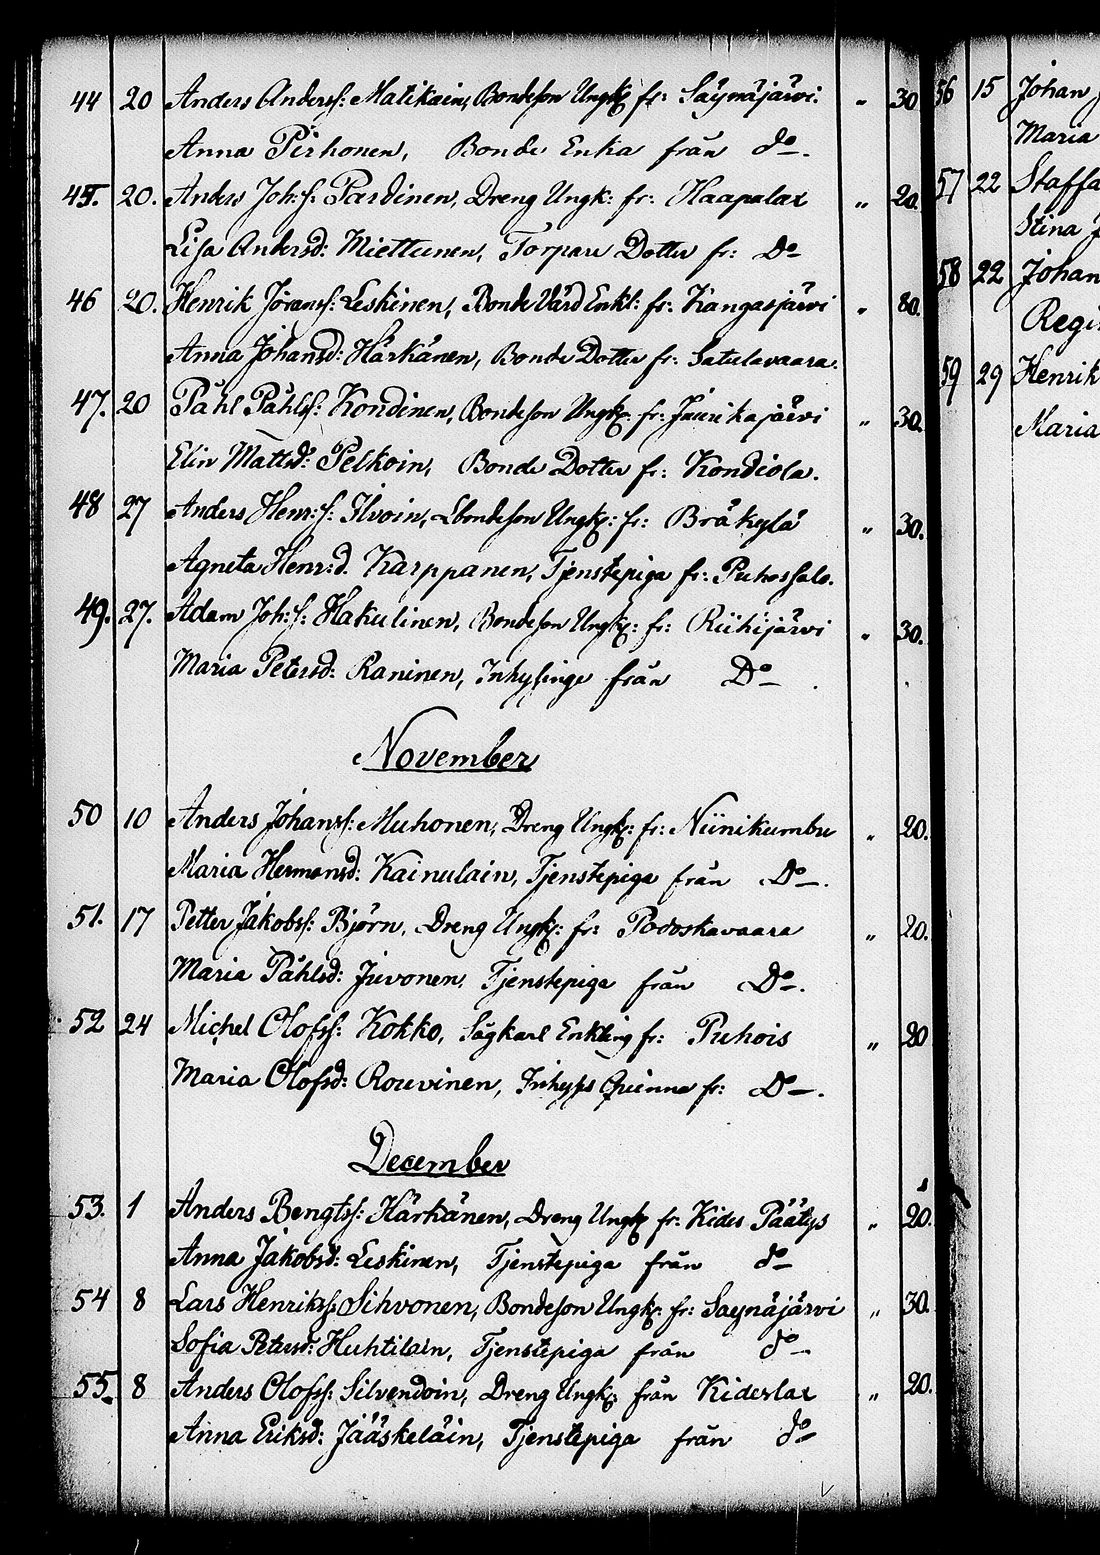 44 20 Anders Anderss: Matikain, Bondeson Ungk: fr: Säynäjärvi. " 30
Anna Pirhonen, Bonde Enka från do.
45. 20. Anders Joh:s: Pardinen, Dreng Ungk: fr: Haapalax " 20.
Lisa Andersd: Miettunen, Torpare Dotter fr: Do
46 20. Henrik Jöranss: Leskinen, Bonde Värd Enkl: fr: Kangasjärvi " 80.
Anna Johansd: Härkänen, Bonde Dotter fr: Satulavaara.
47. 20 Påhl Påhlss: Kondinen, Bondeson Ungk: fr: Juurikajärvi " 30.
Elin Mattsd: Pelkoin, Bonde Dotter fr: Kondiola.
48 27 Anders Henr:s: Ilvoin, Lbondeson Ungk: fr: Bräkylä " 30.
Agneta Henr:d. Karppanen, Tjenstepiga fr: Puhossalo.
49. 27. Adam Joh:s: Hakulinen, Bondeson Ungk: fr: Riihijärvi " 30.
Maria Petersd: Raninen, Inhysinge från Do
November
50 10 Anders Johanss: Muhonen, Dreng Ungk: fr: Niinikumbu " 20.
Maria Hermansd: Kainulain, Tjenstepiga från Do.
51. 17 Petter Jakobss: Björn, Dreng Ungk: fr: Podoskavaara " 20.
Maria Påhlsd: Juvonen, Tjenstepiga från Do.
52 24 Michel Olofss: Kokko, Sågkarl Enkling fr: Puhois " 20
Maria Olofsd: Rouvinen, Inhyses Qvinna fr: Do.
December
53. 1 Anders Bengtss: Härkänen, Dreng Ungk fr: Kides Päätys " 20.
Anna Jakobsd: Leskinen, Tjenstepiga från do
54 8 Lars Henrikss: Sihvonen, Bondeson Ungk: fr: Saynäjärvi " 30.
Sofia Petersd: Huhtilain, Tjenstepiga från do
55. 8 Anders Olofss: Silvendoin, Dreng Ungk: från Kiderlax " 20.
Anna Eriksd: Jääskeläin, Tjenstepiga från do
56 15 Johan
Maria
57 22 Staffa
Stina J
58 22 Johan
Regi
59 29 Henrik
Maria